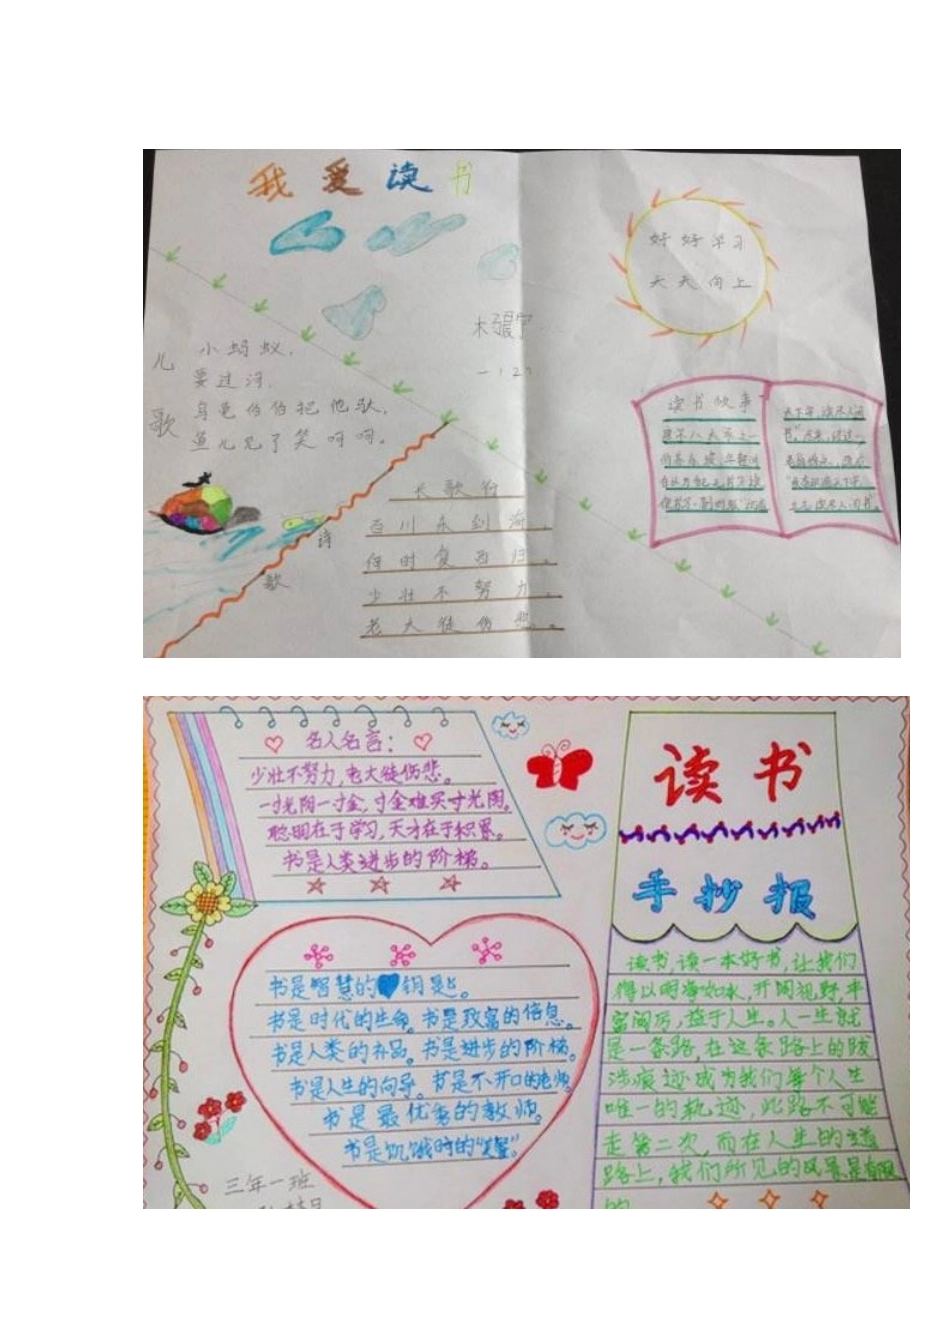 我爱读书
好好学习
天天向上
儿歌
小蚂蚁，
要过河，
乌龟伯伯把他驮，
鱼儿见了笑呵呵。
一、12
读书故事
诗歌
长歌行
百川东到海，
何时复西归。
少壮不努力，
老大徒伤悲。
名人名言：
少壮不努力，老大徒伤悲。
一寸光阴一寸金，寸金难买寸光阴。
聪明在于学习，天才在于积累。
书是人类进步的阶梯。
读书
手抄报
书是智慧的钥匙。
书是时代的生命。书是致富的信息。
书是人类的补品。书是进步的阶梯。
书是人生的向导。书是不开口的老师
书是最优秀的教师。
书是饥饿时的
读书读一本好书，让我们
得以明净如水，开阔视野，丰
富阅历，益于人生。人一生就
是一条路，在这条路上的跋
涉痕迹成为我们每个人生
唯一的轨迹，此路不可能
走第二次，而在人生的道
路上，我们所见的风景是有限
的
三年一班